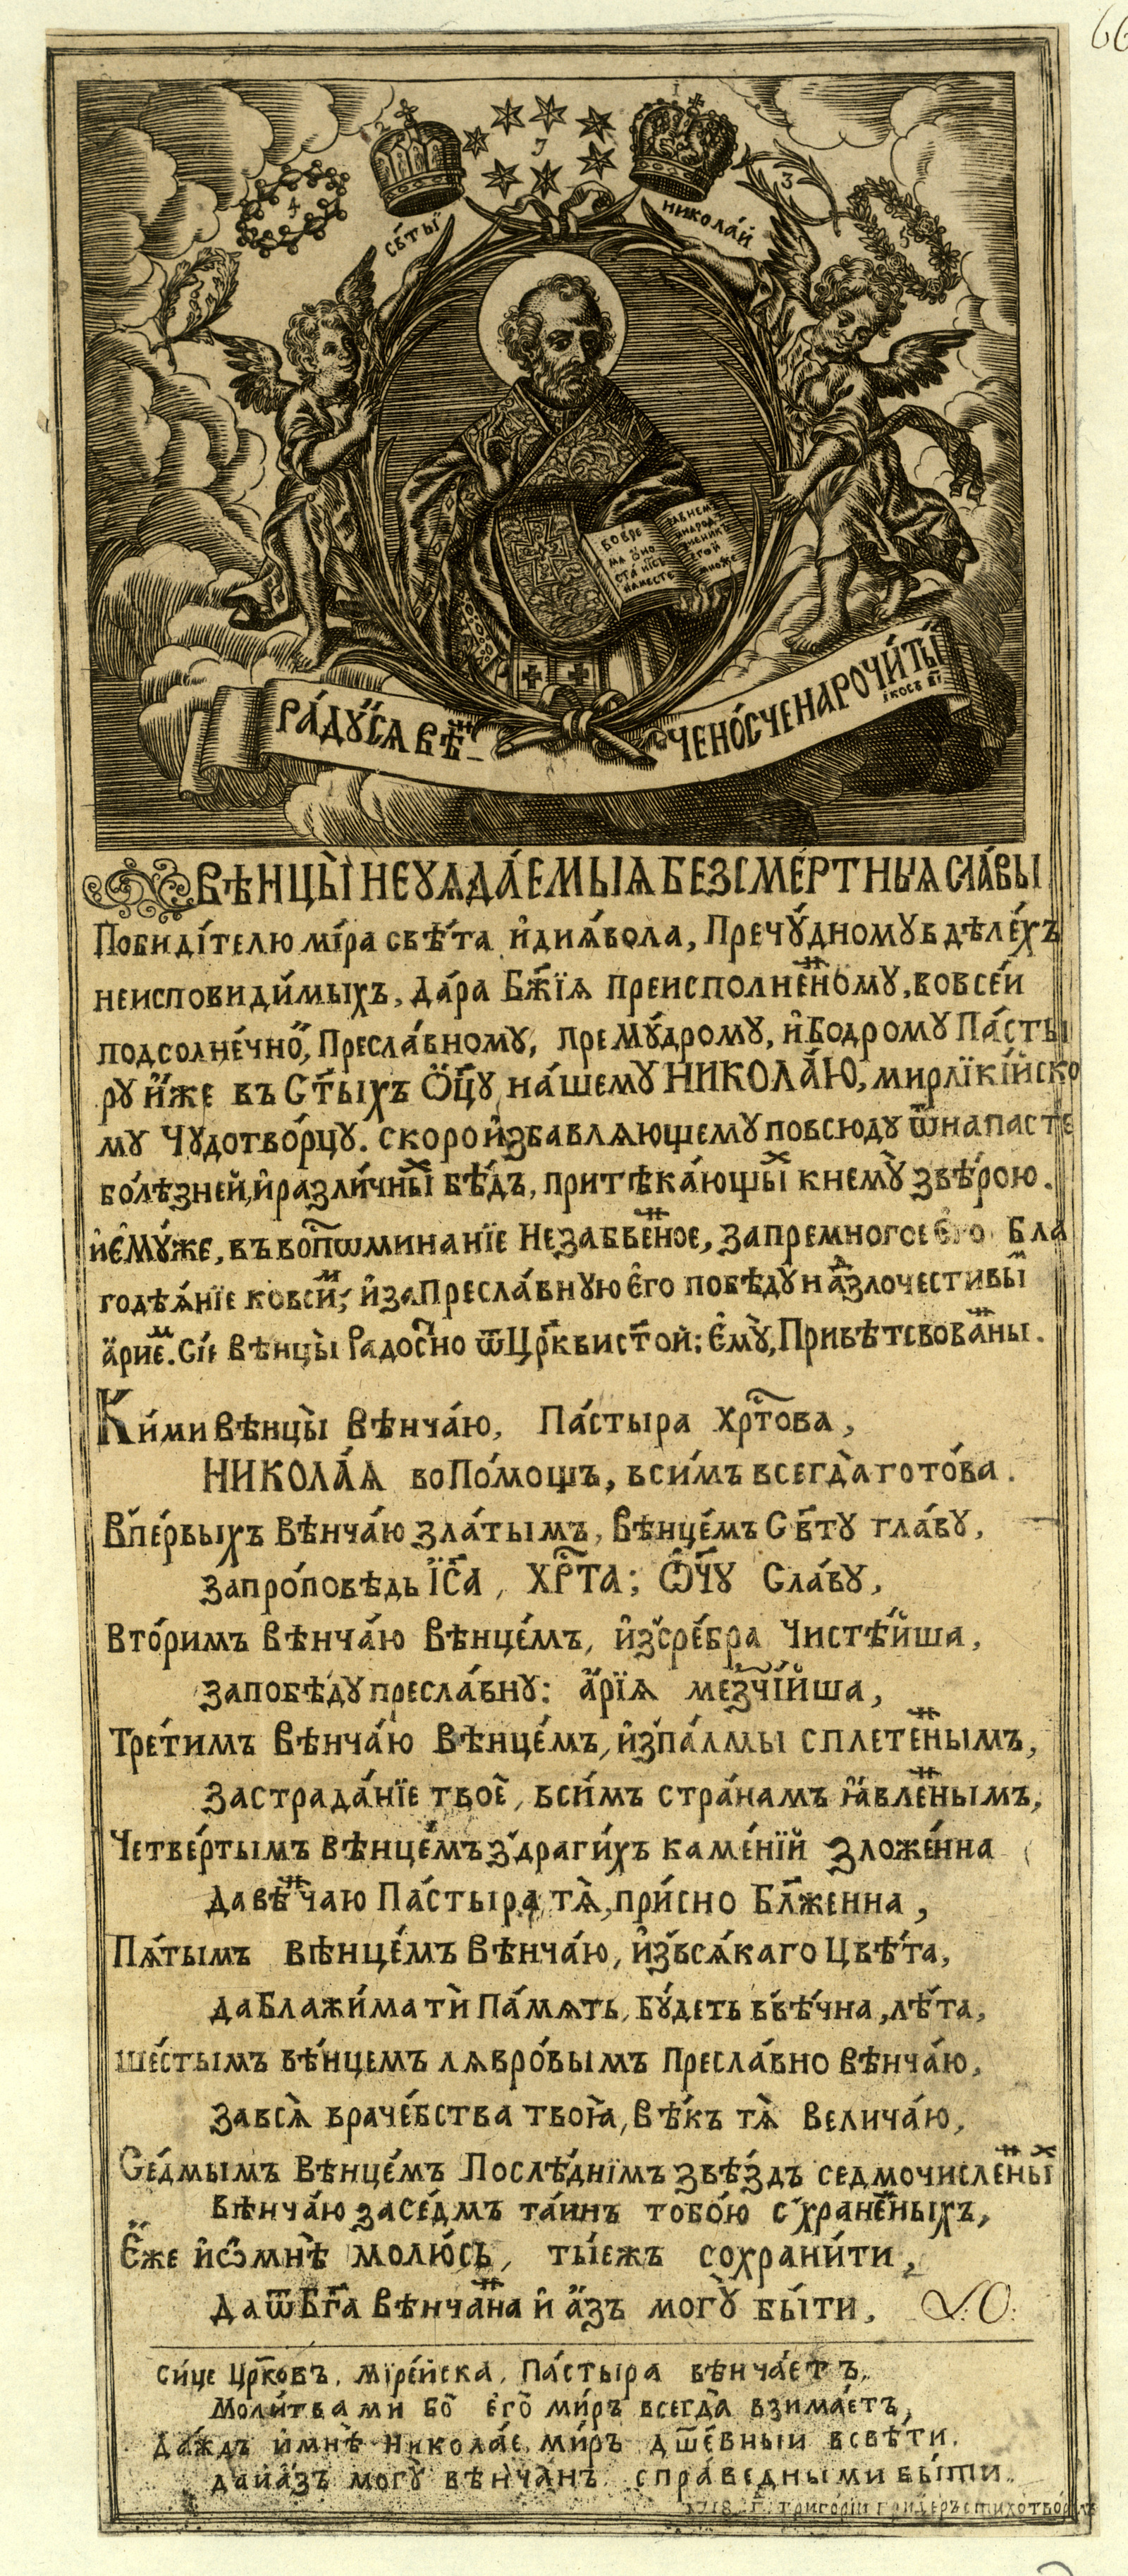 66
2
1
7
3
4
5
СВ҃ТЫЙ
НИКОЛА́Й
БО ВРЕ
МА ОНО
СТА ІИСЪ
НАМЕСТЕ
РАВНЕМ
НАРОД
ЧЕНИКЪ
ЕГОЙ
МНОЖЕ
РА́ДУЙСѦ ВѢН-
ЧЕНО́СЧЕ НАРОЧИ́ТЫЙ
ікосъ в҃і
ВѢНЦЫ̀ НЕУѦДА́ЕМЫѦ БЕЗСМЕ́РТНЫѦ СЛА́ВЫ
Побиди́телю мі́ра свѣ́та и҆ дия́вола, Пречу́дному в дѣле́хъ
неисповиди́мыхъ, да́ра Бж҃їѧ преисполне́нному, во всей
подсолне́чной, Пресла́вному, премꙋ́дрому, и҆ Бодрому Па́сты
ру и҆́же въ Ст҃ы́хъ Ѻ҆ц҃у на́шему НИКОЛА́Ю, мирлїкі́йско
му Чудотво́рцу. скоро и҆збавлѧющему повсюду ѿ напасте
бо́лѣзней, и҆ разли́чных бѣ́дъ, притѣка́ющых к нему̀ звѣ́рою.
и҆ Є҆му́же, въ во́пѡминанїе Незабве́нное, за премногое є҆го Бла
годѣѧ́нїе ко всѣ́м, и҆ за Пресла́вную є҆го побѣ́ду над злочестивым
а҆́рием. Сіѐ вѣнцы̀ Радосно ѿ Цр҃кви ст҃ой: Є҆му̀, Привѣтсвова́нны.
Ки́ми вѣнцы̀ вѣнча́ю, Па́стыра Хрт҃о́ва,
НИКОЛА́Ѧ во По́мощъ, всимъ всегда̀ гото́ва.
Впе́рвыхъ вѣнча́ю зла́тымъ, вѣнце́мъ Св҃ту гла́ву,
за про́повѣдь І҆с҃а, ХР҃ТА; Ѻ҆ч҃у Сла́ву,
Вто́римъ вѣнча́ю вѣнце́мъ, и҆з сре́бра Чистѣ́йша,
за побѣ́ду пресла́вну: а҆́рїѧ ме́зчі́йша,
Тре́тимъ вѣнча́ю вѣнце́мъ, и҆з па́лмы сплете́ннымъ,
за страда́нїе твоѐ, всѝмъ стра́намъ ꙗ҆вле́ннымъ,
Четве́ртымъ вѣнце́мъ з драги́хъ каме́нїй зложе́нна
да вѣнчаю Па́стыра тѧ̀, при́сно Бл҃же́нна,
Пѧ́тымъ вѣнце́мъ вѣнча́ю, и҆з всѧ́каго Цвѣ́та,
да Блажи́ма тѝ Па́мѧть, бу́деть в вѣ́чна, лѣ́та,
Ше́стымъ вѣ́нцемъ лѧвро́вымъ Пресла́вно вѣнча́ю,
за всѧ̀ враче́бства твоѧ̀, вѣ́къ тѧ̀ велича́ю,
Се́дмымъ вѣнце́мъ Послѣ́днїмъ звѣ́здъ седмочисле́нных
вѣнча́ю за се́дмъ та́инъ тобо́ю с хране́нныхъ,
Є҆́же и҆ ѡ҆ мнѣ̀ молю́сь, ты́ ежъ сохрани́ти,
да ѿ Бг҃а вѣнча́на и҆ а҆́зъ могу̀ бы́ти.
Си́це Цр҃ковъ, мїре́йска, Па́стыра вѣнча́етъ,
Моли́твами бо̀ є҆го̀ ми́ръ всегда̀ взима́етъ,
Да́ждъ и҆ мнѣ̀ Никола́е ми́ръ дш҃е́вный в свѣ́ти.
да и а҆́зъ могу̀ вѣнча́нъ с пра́ведными бы́ти.
1718 г. григорій гридеръ стихотво́рецъ